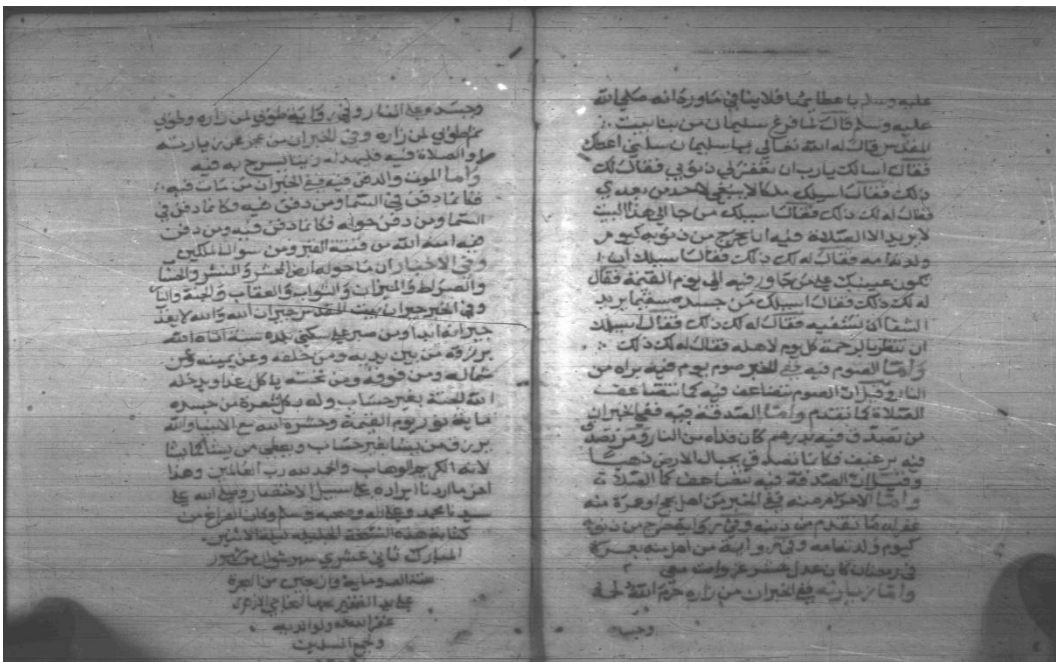 عليه وسلم باعطائهما فلا ينافي ما ورد انه صلى الله
عليه وسلم قال لما فرغ سليمان من بنا بيت
المقدس قال له الله تعالى يا سليمان سلني اعطك
فقال اسالك يا رب ان تغفر لي ذنوبي فقال لك
ذلك فقال اسيلك ملكا لا ينبغي لاحد من بعدي
فقال له لك ذلك فقال اسيلك من جا الى هذا البيت
لا يريد الا الصلاة فيه ان يخرج من ذنوبه كيوم
ولدته امه فقال له لك ذلك فقال اسيلك ان
تكون عينك على من جاور فيه الى يوم القيمة فقال
له لك ذلك فقال اسيلك من جسده سقيما يريد
الشفا ان تشفيه فقال له لك ذلك فقال اسيلك
ان تنظر بالرحمة كل يوم لاهله فقال له لك ذلك
وأما الصوم فيه ففي الخبر صوم يوم فيه براه من
النار وقيل ان الصوم تضاعف فيه كما تتضاعف
الصلاة كما تقدم وأما الصدقة فيه ففي الخبر ان
من تصدق فيه بدرهم كان فداه من النار ومن تصدق
فيه برغيف فكانما تصدق بجبال الارض ذهبا
وقيل ان الصدقة فيه تتضاعف كما الصلاة
وأما الاحرام منه ففي الخبر من اهل بحج او عمرة منه
غفر له ما تقدم من ذنبه وفي يخرج من ذنوبه
كيوم ولدته امه وفي رواية من اهل منه بعمرة
في رمضان كان عدل عشر غزوات معي
وأما زيارته ففي الخبر ان من زاره حرم الله لحمه
وجسده
وجسده على النار وفي رواية طوبى لمن زاره وطوبى
ثم طوبى لمن زاره وفي الخبر ان من عجز عن زيارته
والصلاة فيه فليهد له زيتا يسرج به فيه
وأما الموت والدفن فيه ففي الخبر ان من مات فيه
فكانما دفن في السما ومن دفن فيه فكانما دفن في
السما ومن دفن حوله فكانما دفن فيه ومن دفن
فيه امنه الله من فتنة القبر ومن سوال الملكين
وفي الاخبار ان ما حوله ارض المحشر والمنشر والحساب
والصراط والميزان والثواب والعقاب والجنة والنار
وفي الخبر جيران بيت المقدس جيران الله والله لا يعذب
جيرانه ابدا ومن صبر على سكنى بلده سنة اتاه الله
برزقه من بين يديه ومن خلفه وعن يمينه وعن
شماله ومن فوقه ومن تحته ياكل غدا ويدخله
الله الجنة بغير حساب وله بكل شعرة من جسده
ماية نور يوم القيمة وحشره الله مع الانبيا والله
يرزق من يشا بغير حساب ويعطي من يشا
لانه الكريم الوهاب والحمد لله رب العالمين وهذا
اخر ما اردنا ايراده على سبيل الاختصار وصلى الله على
سيدنا محمد وعلى اله وصحبه وسلم وكان الفراغ من
كتابة هذه النسخة الجليله ليلة الاثنين
المبارك ثاني عشري شهر شوال من شهور
سنة الف وماية من الهجرة
على يد الفقير
غفر الله له ولوالديه
ولجميع المسلمين